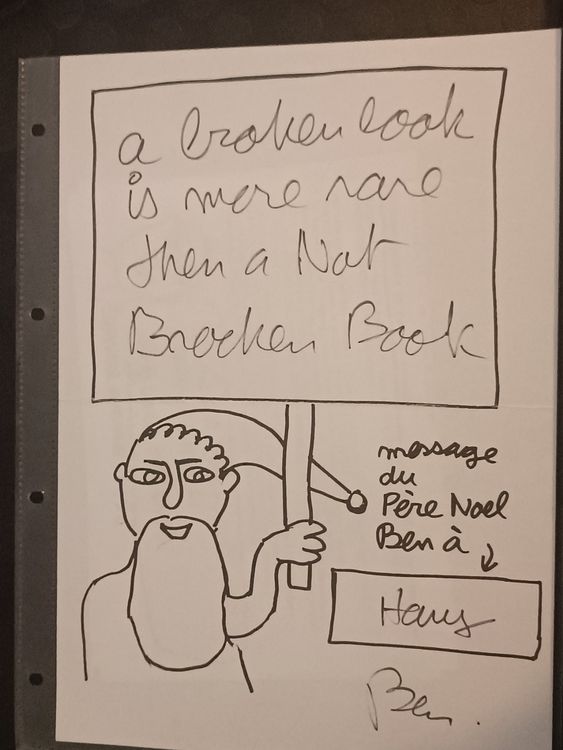 a broken book
is more rare
then a Not
Brocken Book
message
du
Père Noel
Ben à
Hans
Ben.